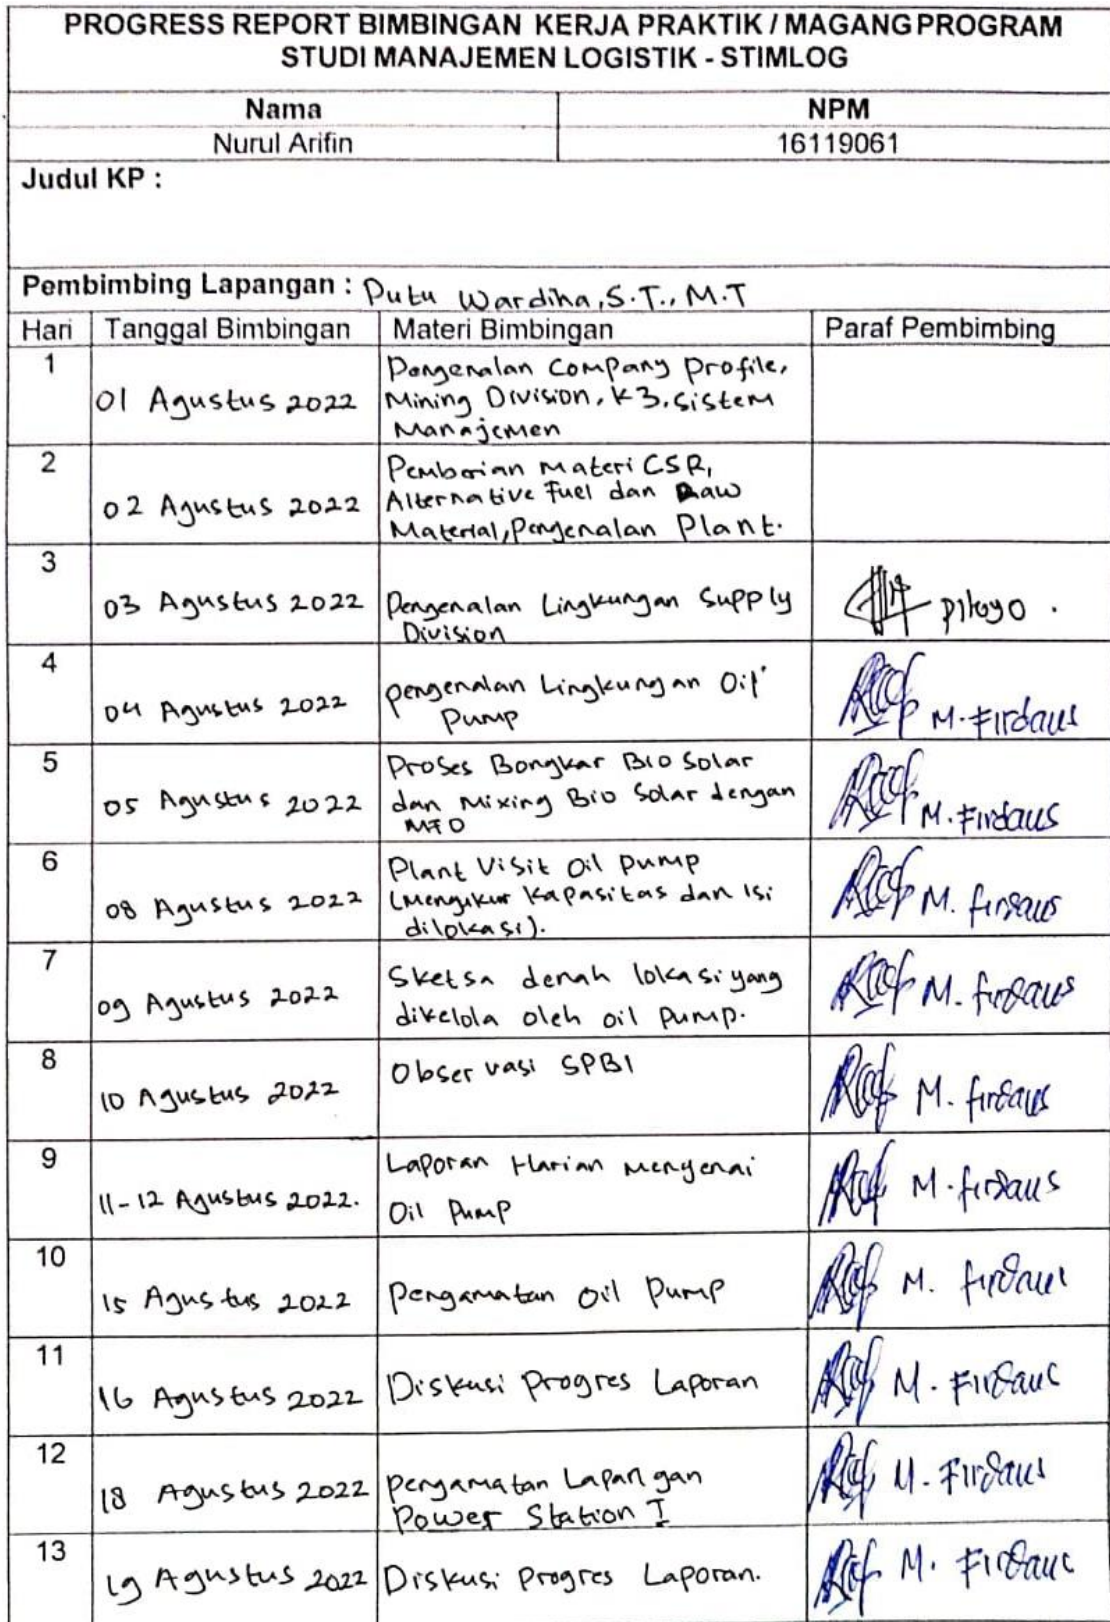 PROGRESS REPORT BIMBINGAN KERJA PRAKTIK / MAGANG PROGRAM
STUDI MANAJEMEN LOGISTIK - STIMLOG
Nama NPM
Nurul Arifin 16119061
Judul KP :
Pembimbing Lapangan : Putu Wardiha, S.T., M.T
Hari Tanggal Bimbingan Materi Bimbingan Paraf Pembimbing
1 01 Agustus 2022 Pengenalan Company Profile,
Mining Division, K3, Sistem
Manajemen
2 02 Agustus 2022 Pemberian Materi CSR,
Alternative Fuel dan Raw
Material, Pengenalan Plant.
3 03 Agustus 2022 Pengenalan Lingkungan Supply
Division
4 04 Agustus 2022 Pengenalan Lingkungan Oil
Pump M. Firdaus
5 05 Agustus 2022 Proses Bongkar Bio Solar
dan Mixing Bio Solar dengan
MFO M. Firdaus
6 08 Agustus 2022 Plant Visit Oil Pump
(Mengukur Kapasitas dan Isi
dilokasi). M. Firdaus
7 09 Agustus 2022 Sketsa denah lokasi yang
dikelola oleh Oil Pump. M. Firdaus
8 10 Agustus 2022 Observasi SPBI M. Firdaus
9 11-12 Agustus 2022. Laporan Harian Mengenai
Oil Pump M. Firdaus
10 15 Agustus 2022 Pengamatan Oil Pump M. Firdaus
11 16 Agustus 2022 Diskusi Progres Laporan M. Firdaus
12 18 Agustus 2022 Pengamatan Lapangan
Power Station I M. Firdaus
13 19 Agustus 2022 Diskusi Progres Laporan. M. Firdaus